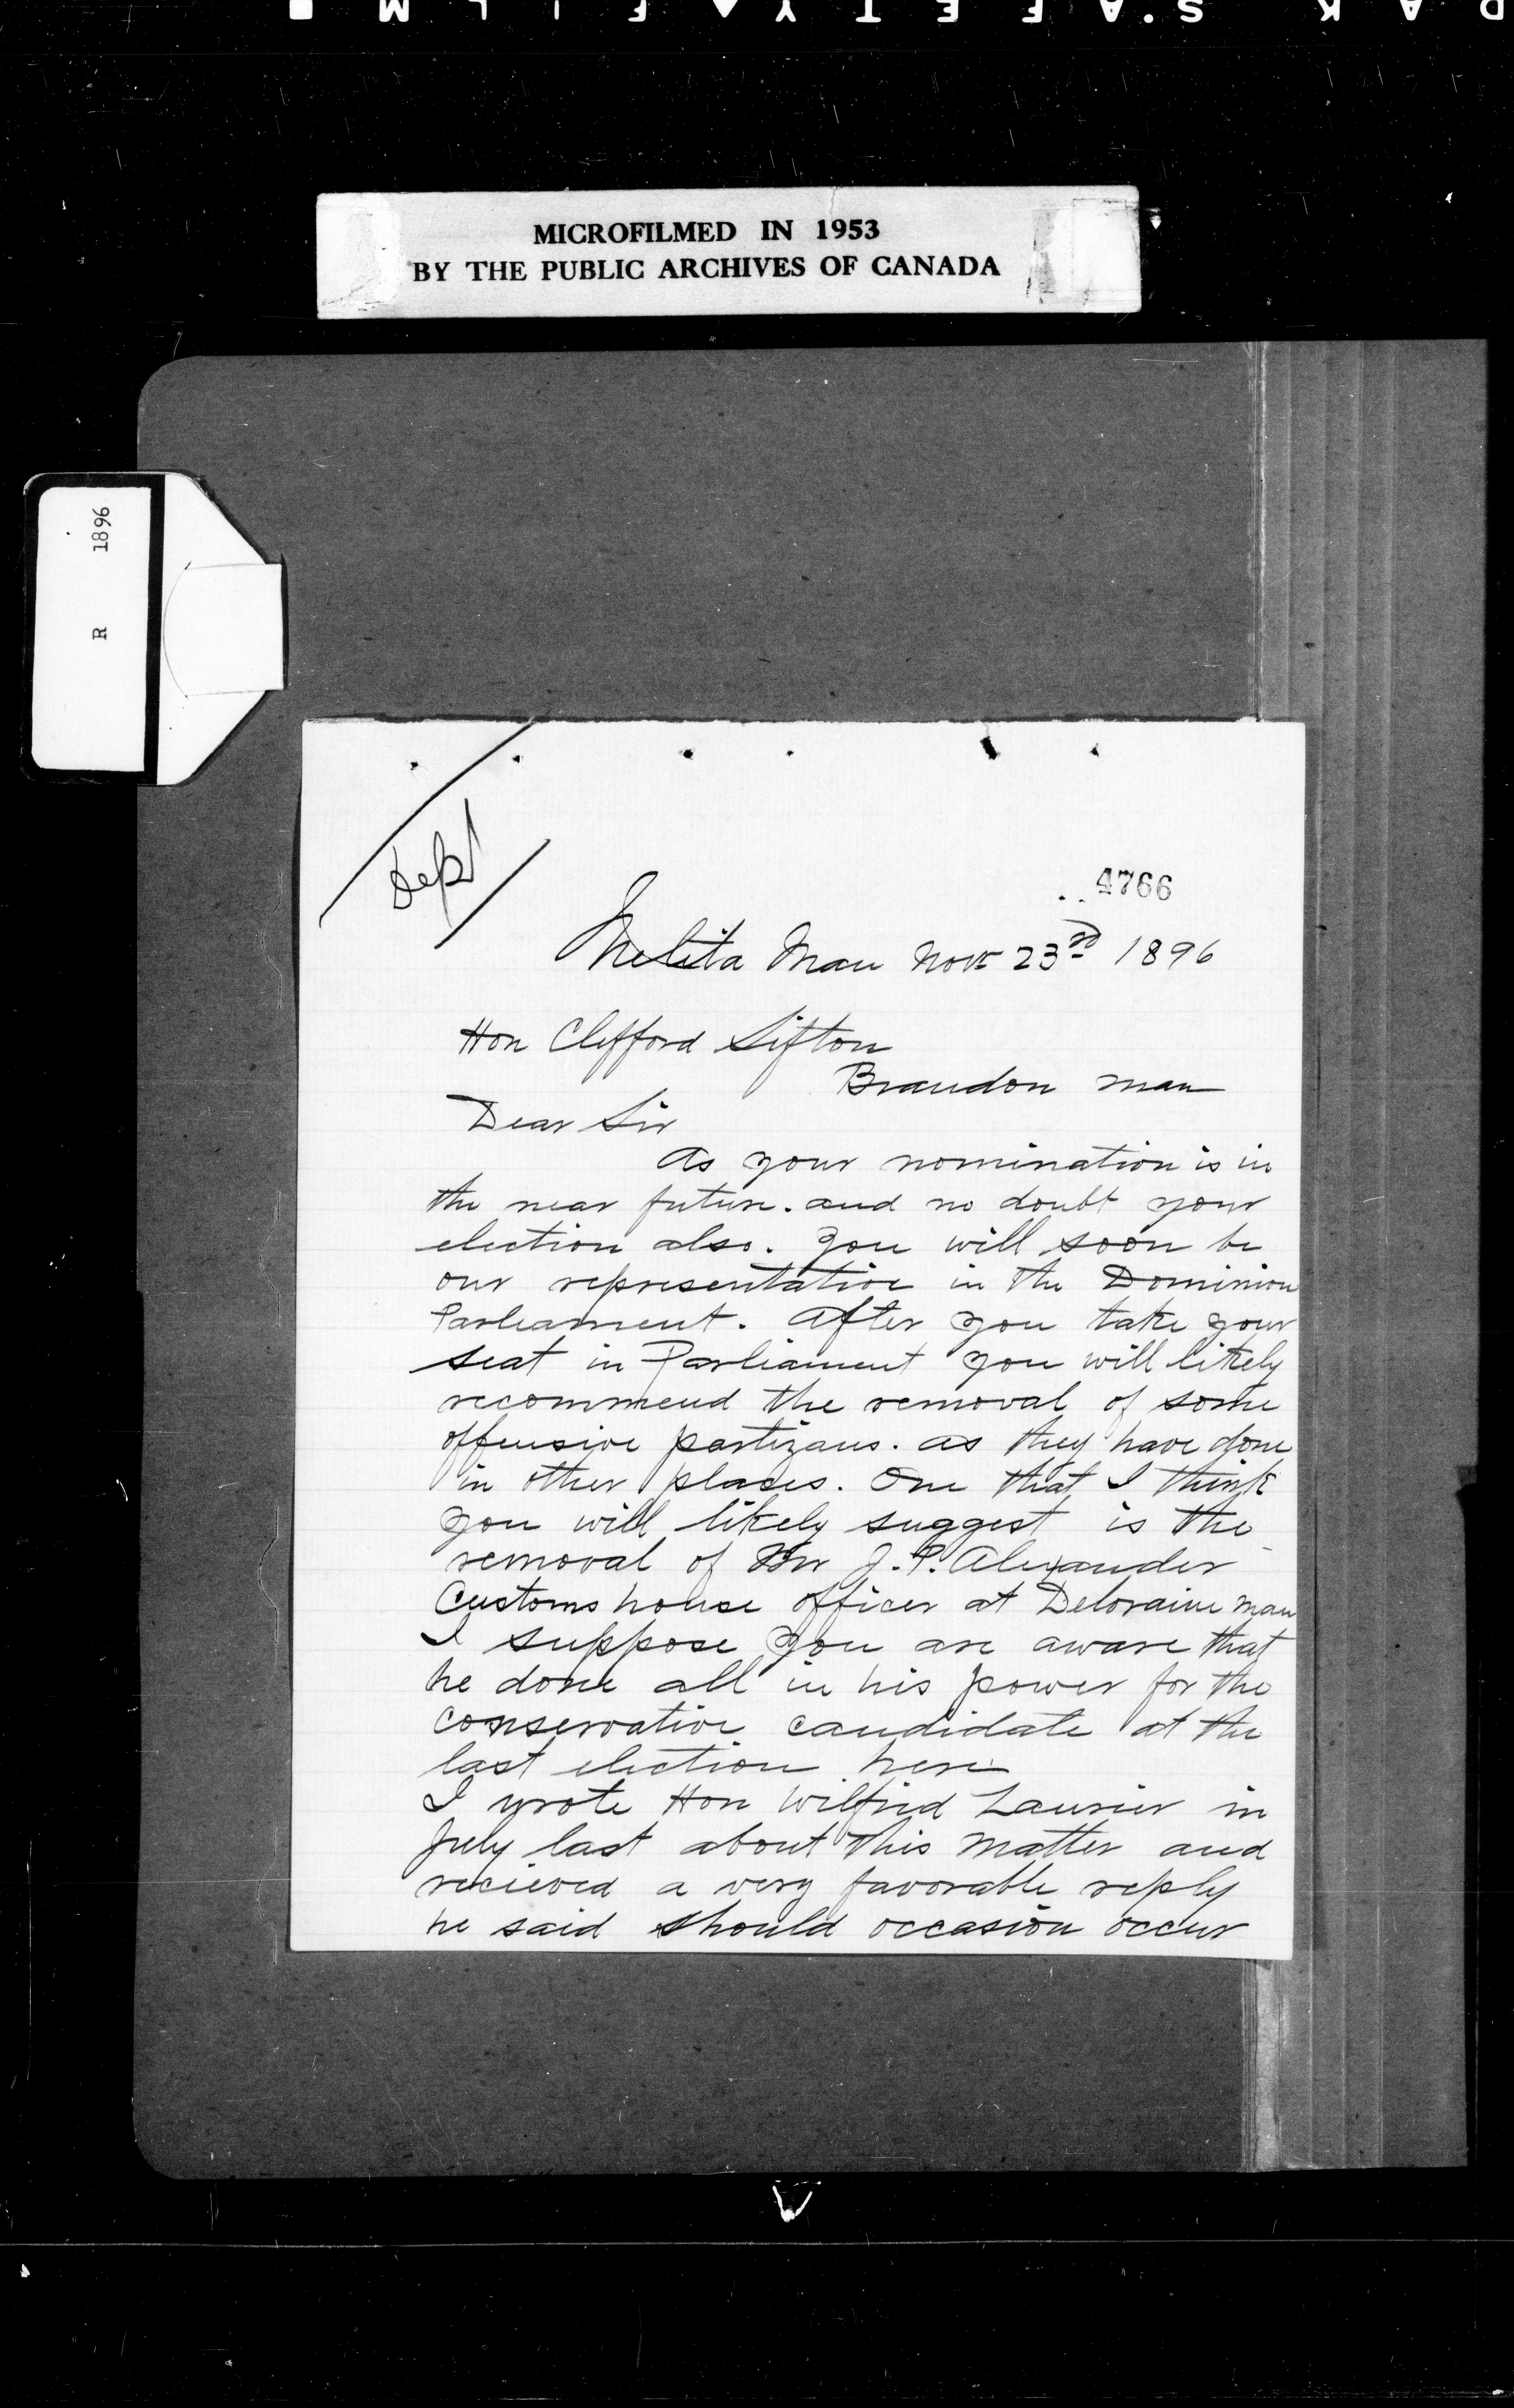 PARK SAFETY FILM
MICROFILMED IN 1953
BY THE PUBLIC ARCHIVES OF CANADA
R 1896
Dept
4766
Melita Man Nov 23rd 1896
Hon Clifford Sifton
Brandon Man
Dear Sir
As your nomination is in
the near future. and no doubt your
election also. you will soon be
our representative in the Dominion
Parliament. After you take your
seat in Parliament you will likely
recommend the removal of some
offensive partizans. as they have done
in other places. One that I think
you will likely suggest is the
removal of Mr J. P. Alexander
Customs house officer at Deloraine Man
I suppose you are aware that
he done all in his power for the
conservative candidate at the
last election here
I wrote Hon Wilfrid Laurier in
July last about this matter and
recieved a very favorable reply
he said should occasion occur